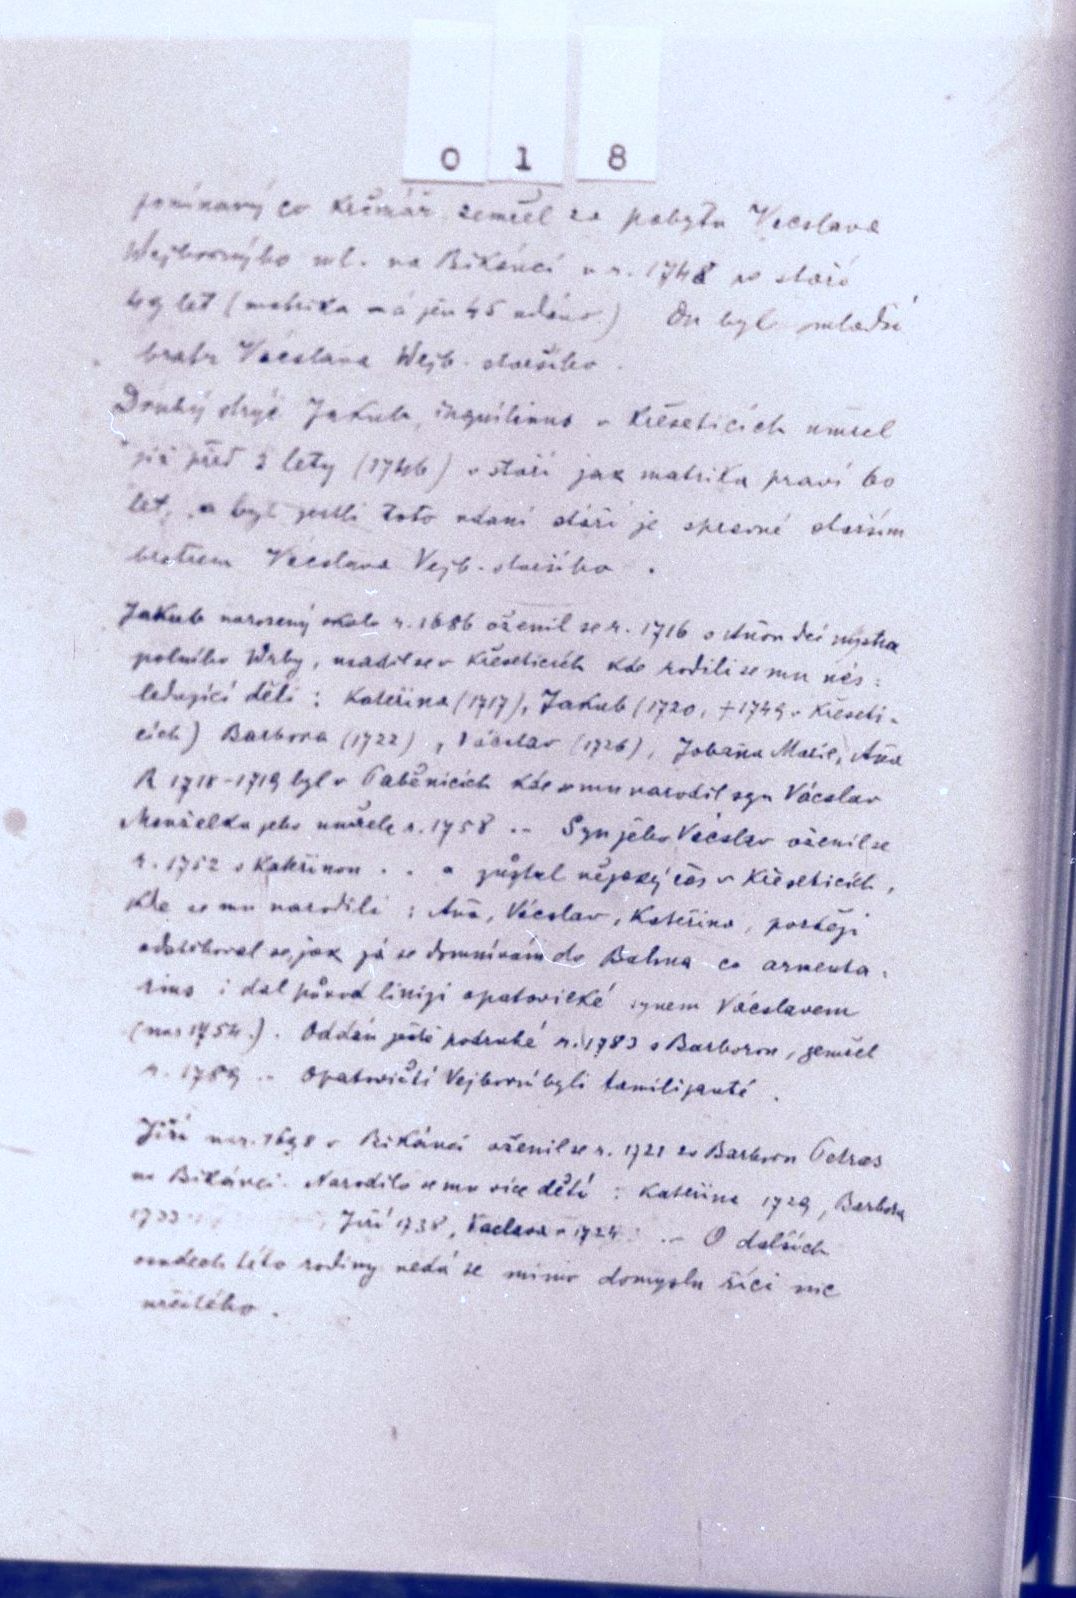 0 1 8
pomínaný co krčmář zemřel za pobytu Vácslava
Wejborného ml. na Bikánci u r. 1748 ve stáří
49 let (matrika má jen 45 udáno.) On byl mladší
bratr Vácslava Wejb. staršího.
Druhý strýc Jakub, inquilinus v Křeseticích umřel
již před 2 lety (1746) v stáří jak matrika praví 60
let, a byl jestli toto udání stáří je správné starším
bratrem Vácslava Vejb. staršího.
Jakub narozený okolo r. 1686 oženil se r. 1716 s Annou dcí mistra
polního Wrby, usadil se v Křeseticích kde rodili se mu nás-
ledující děti: Kateřina (1717), Jakub (1720, +1749 v Křeseti-
cích) Barbora (1722), Václav (1726), Johana Marie, Aña
R 1718-1719 byl v Paběnicích kde se mu narodil syn Vácslav
Manželka jeho umřela r. 1758 .- Syn jeho Václav oženil se
r. 1752 s Kateřinou . . a zůstal nějaký čas v Křeseticích,
kde se mu narodili: Aña, Václav, Kateřina, později
odstěhoval se, jak já se domnívám do Bahna co armenta-
rius i dal původ liniji opatovické synem Vácslavem
(nar 1754.). Oddán ještě podruhé r. 1783 s Barborou, zemřel
r. 1789 .- Opatovičtí Vejborní byli familijanté.
Jiří nar. 1698 v Bikánci oženil se r. 1721 za Barboru Petras
na Bikánci. Narodilo se mu více dětí: Kateřina 1729, Barbora
1733 Jiří 1738, Vaclava 1724 .- O dalších
osudech této rodiny nedá se mimo domyslu říci nic
určitého.